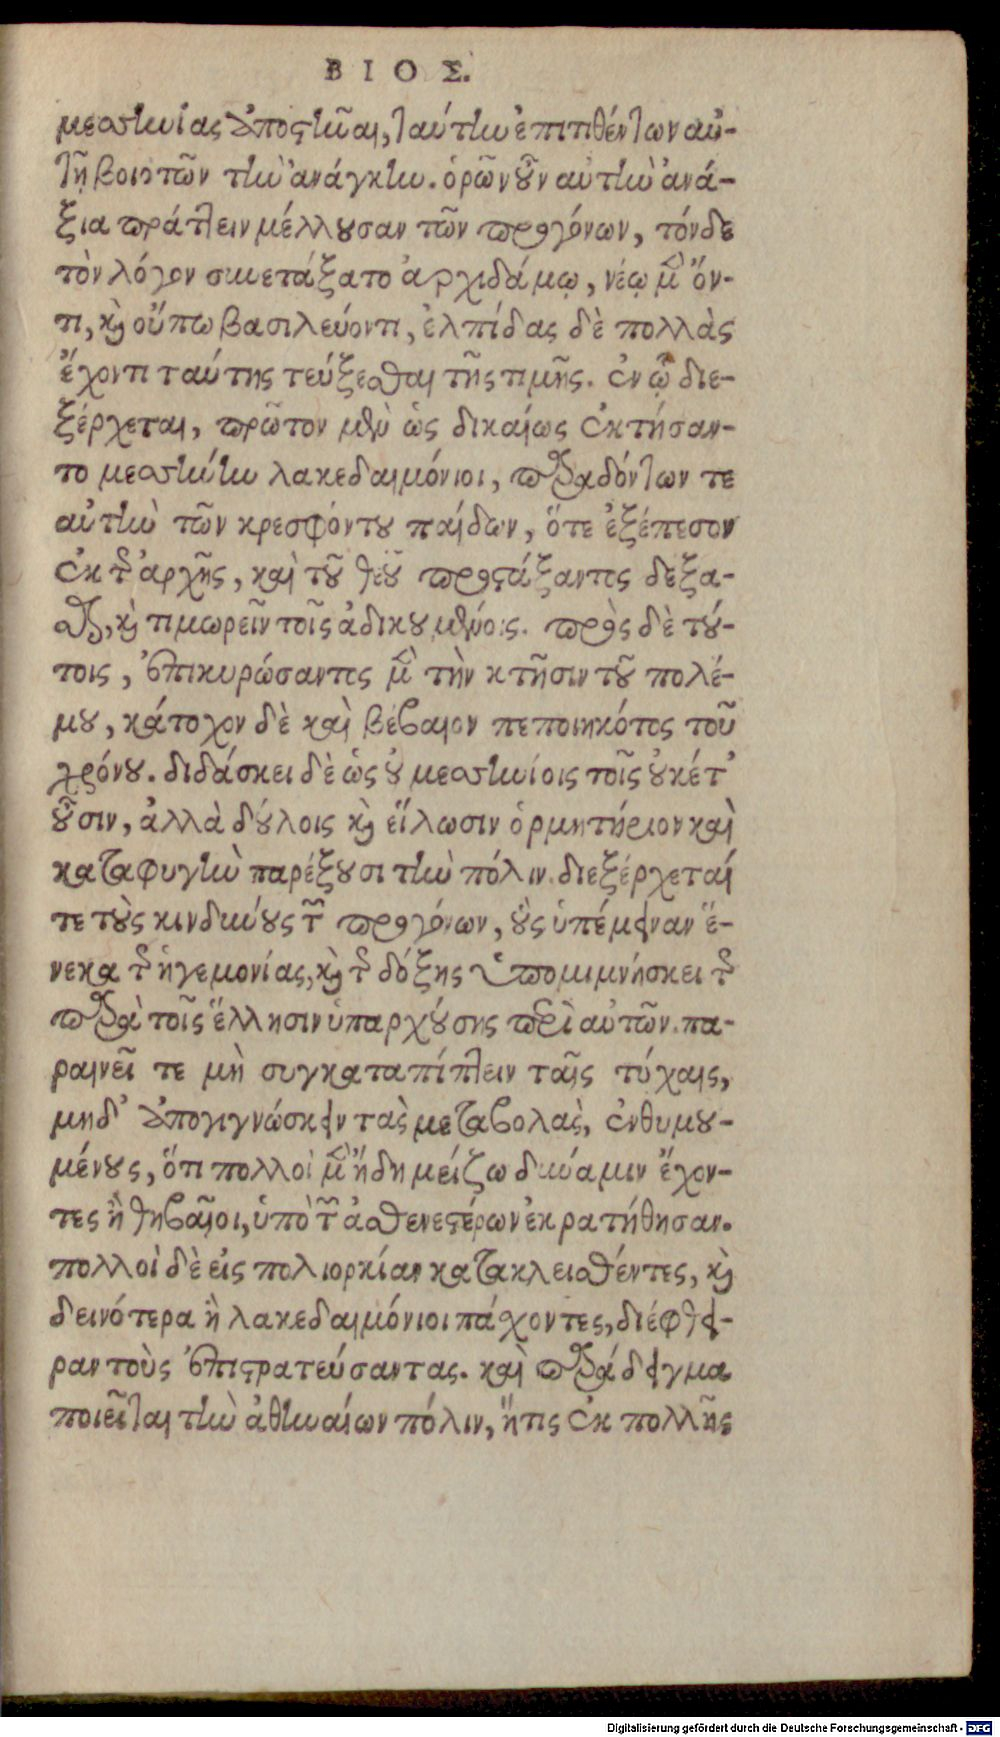 ΒΙΟΣ.
μεσσηνίας ἀποστῆναι, ταύτην ἐπιτιθέντων αὐ-
τῇ βοιωτῶν τὴν ἀνάγκην. ὁρῶν οὖν αὐτὴν ἀνά-
ξια πράττειν μέλλουσαν τῶν προγόνων, τόνδε
τὸν λόγον συνετάξατο ἀρχιδάμῳ, νέῳ μὲν ὄν-
τι, καὶ οὔπω βασιλεύοντι, ἐλπίδας δὲ πολλὰς
ἔχοντι ταύτης τεύξεσθαι τῆς τιμῆς. ἐν ᾧ διε-
ξέρχεται, πρῶτον μὲν ὡς δικαίως ἐκτήσαν-
το μεσσήνην λακεδαιμόνιοι, παραδόντων τε
αὐτὴν τῶν κρεσφόντου παίδων, ὅτε ἐξέπεσον
ἐκ τῆς ἀρχῆς, καὶ τοῦ θεοῦ προστάξαντος δέξα-
σθαι, καὶ τιμωρεῖν τοῖς ἀδικουμένοις. πρὸς δὲ τού-
τοις, ἐπικυρώσαντος μὲν τὴν κτῆσιν τοῦ πολέ-
μου, κάτοχον δὲ καὶ βέβαιον πεποιηκότος τοῦ
χρόνου. διδάσκει δὲ ὡς οὐ μεσσηνίοις τοῖς οὐκέτ'
οὖσιν, ἀλλὰ δούλοις καὶ εἵλωσιν ὁρμητήριον καὶ
καταφυγὴν παρέξουσι τὴν πόλιν. διεξέρχεταί
τε τοὺς κινδύνους τῶν προγόνων, οὓς ὑπέμειναν ἕ-
νεκα τῆς ἡγεμονίας, καὶ τῆς δόξης ὑπομιμνήσκει τῆς
παρὰ τοῖς ἕλλησιν ὑπαρχούσης περὶ αὐτῶν. πα-
ραινεῖ τε μὴ συγκαταπίπτειν ταῖς τύχαις,
μηδ' ἀπογιγνώσκειν τὰς μεταβολὰς, ἐνθυμου-
μένους, ὅτι πολλοὶ μὲν ἤδη μείζω δύναμιν ἔχον-
τες ἢ θηβαῖοι, ὑπὸ τῶν ἀσθενεστέρων ἐκρατήθησαν.
πολλοὶ δὲ εἰς πολιορκίαν κατακλεισθέντες, καὶ
δεινότερα ἢ λακεδαιμόνιοι πάσχοντες, διέφθει-
ραν τοὺς ἐπιστρατεύσαντας. καὶ παράδειγμα
ποιεῖται τὴν ἀθηναίων πόλιν, ἥτις ἐκ πολλῆς
Digitalisierung gefördert durch die Deutsche Forschungsgemeinschaft - DFG